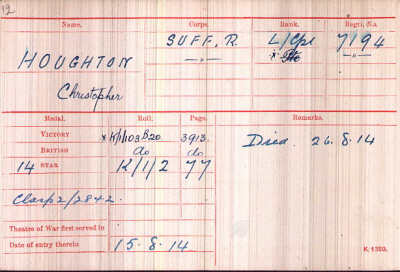 12
Name. Corps. Rank. Regtl. No.
HOUGHTON SUFF. R. L/Cpl 7194
Christopher —„— x Pte
Medal. Roll. Page. Remarks.
VICTORY x K/1/103 B20 3913 Died 26.8.14
BRITISH do do
14 STAR K/1/2 77
Clasp 2/2842.
Theatre of War first served in
Date of entry therein 15.8.14
K. 1380.